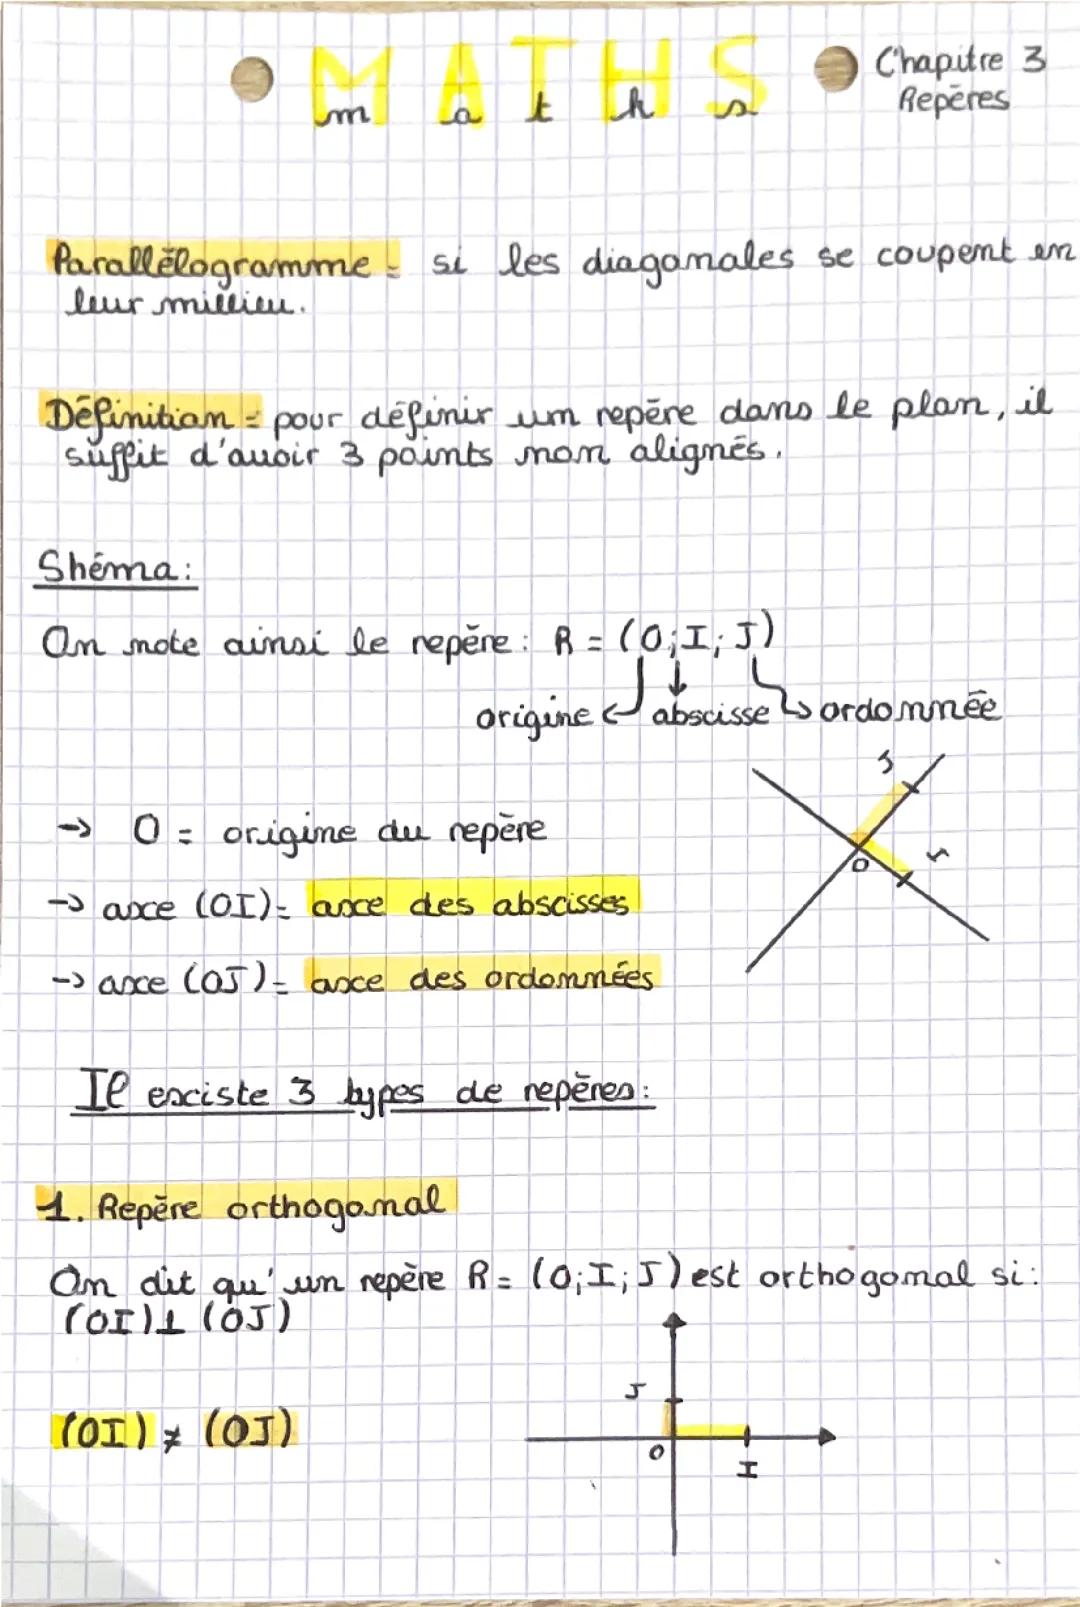 MATHS
maths
Chapitre 3
Repères
Parallélogramme = si les diagonales se coupent en
leur millieu.
Définition = pour définir um repère dans le plan, il
suffit d'avoir 3 points non alignés.
Shéma:
On note ainsi le repère : R = (O;I;J)
origine abscisse ordonnée
J
-> O = origine du repère
O
I
-> axe (OI) = axe des abscisses
-> axe (OJ) = axe des ordonnées
Il exciste 3 types de repères:
1. Repère orthogonal
On dit qu'un repère R = (O;I;J) est orthogonal si :
(OI)⊥ (OJ)
J
(OI) ≠ (OJ)
O
I